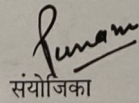 Punam
संयोजिका